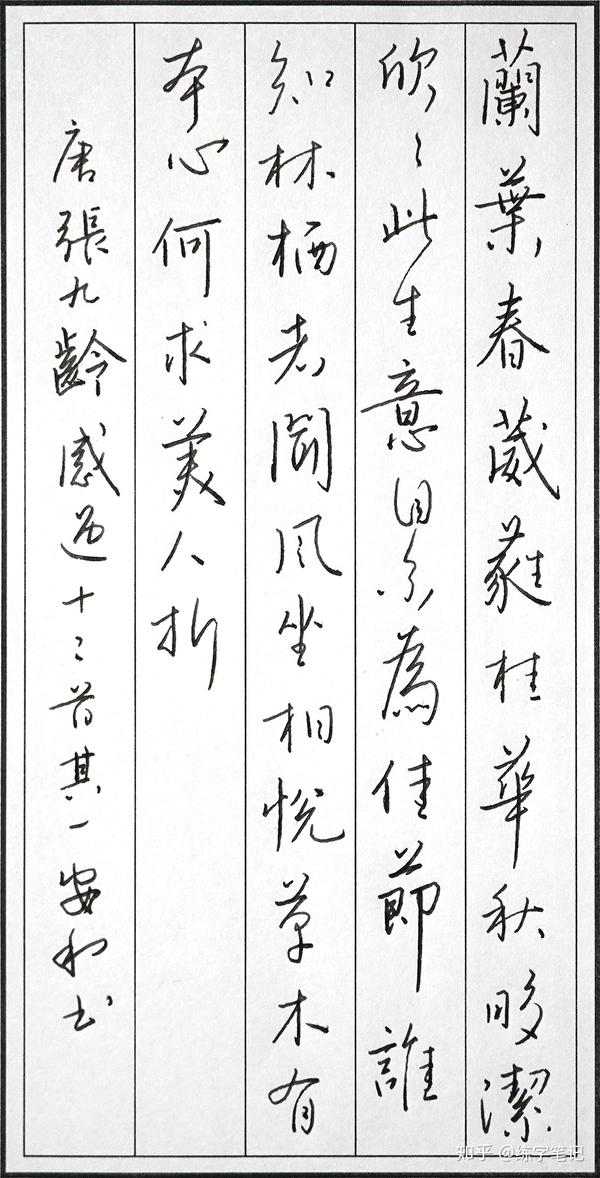 蘭葉春葳蕤桂華秋晈潔
欣〻此生意自尒為佳節誰
知林栖者聞風坐相悅草木有
本心何求美人折
唐張九齡感遇十二首其一安和书
知乎 @练字笔记